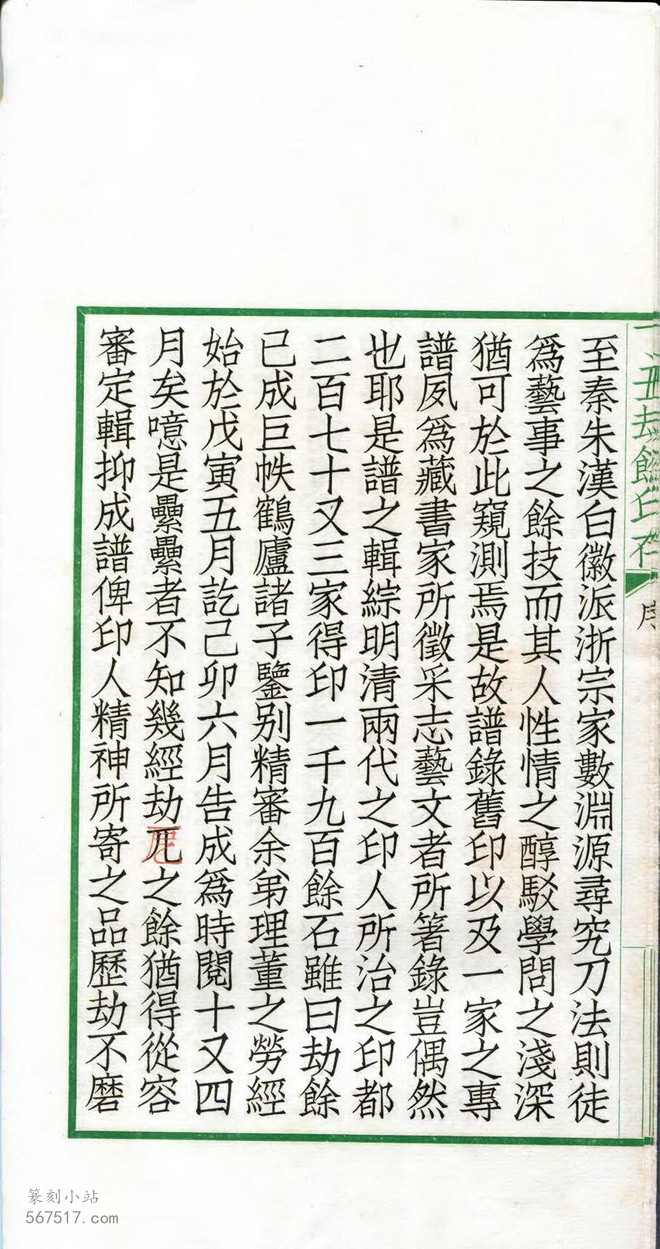 丁丑劫餘印存
序
至秦朱漢白徽派浙宗家數淵源尋究刀法則徒
爲藝事之餘技而其人性情之醇駁學問之淺深
猶可於此窺測焉是故譜錄舊印以及一家之專
譜夙爲藏書家所徵采志藝文者所箸錄豈偶然
也耶是譜之輯綜明清兩代之印人所治之印都
二百七十又三家得印一千九百餘石雖曰劫餘
已成巨帙鶴廬諸子鑒别精審余弟理董之勞經
始於戊寅五月訖己卯六月告成爲時閱十又四
月矣噫是纍纍者不知幾經劫之餘猶得從容
審定輯抑成譜俾印人精神所寄之品歷劫不磨
篆刻小站
567517.com